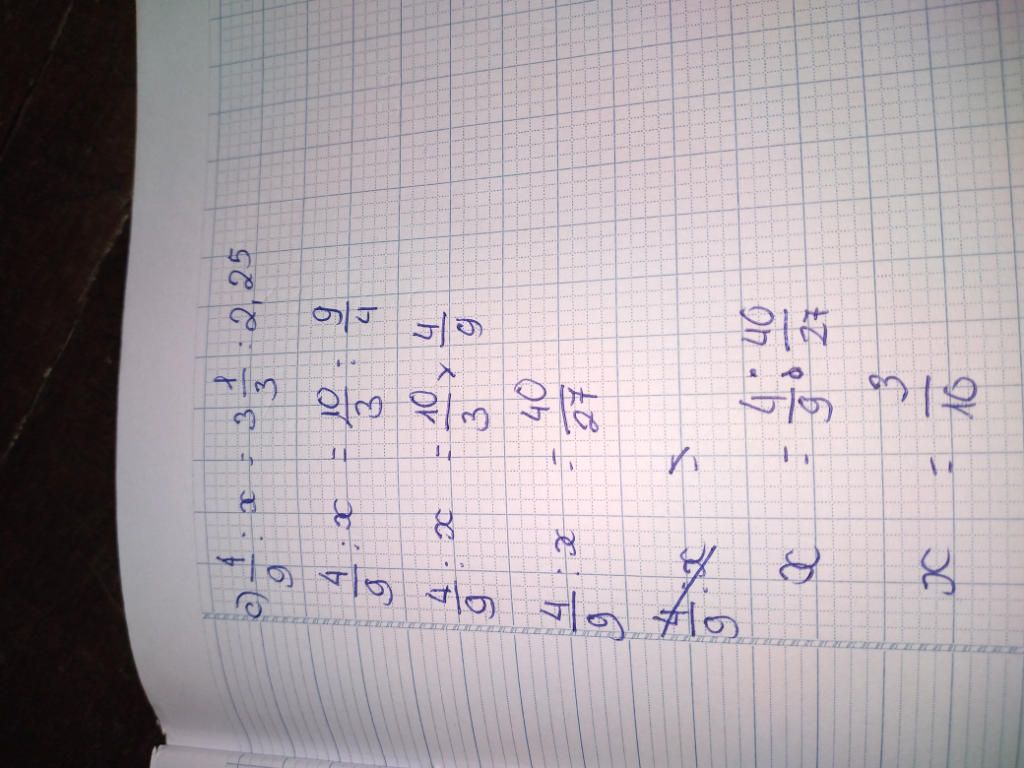 c) 4/9 : x = 3 1/3 : 2,25
4/9 : x = 10/3 : 9/4
4/9 : x = 10/3 x 4/9
4/9 : x = 40/27
4/9 : x =
x = 4/9 : 40/27
x = 3/10